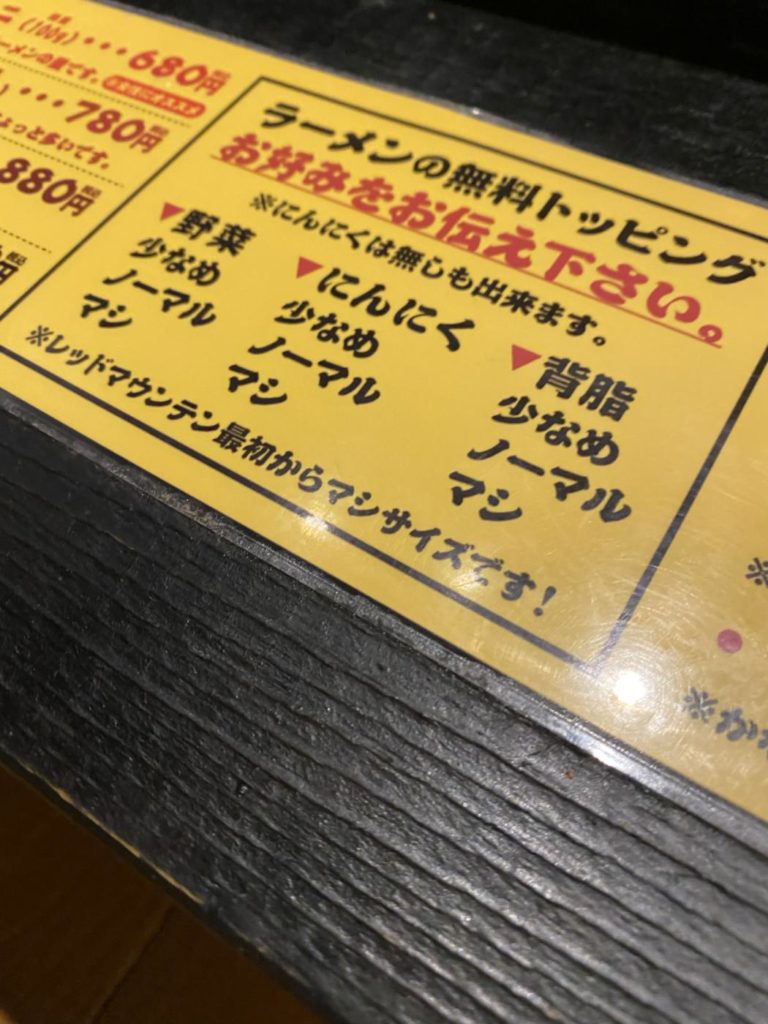 (100g)・・・680円
ーメンの量です。
女性にオススメ
・・・780円
ょっと多いです。
880円
円
ラーメンの無料トッピング
お好みをお伝え下さい。
※にんにくは無しも出来ます。
▼野菜
少なめ
ノーマル
マシ
▼にんにく
少なめ
ノーマル
マシ
▼背脂
少なめ
ノーマル
マシ
※レッドマウンテン最初からマシサイズです!
※か